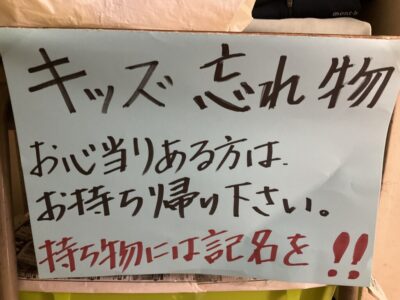 キッズ 忘れ物
お心当りある方は、
お持ち帰り下さい。
持ち物には記名を!!